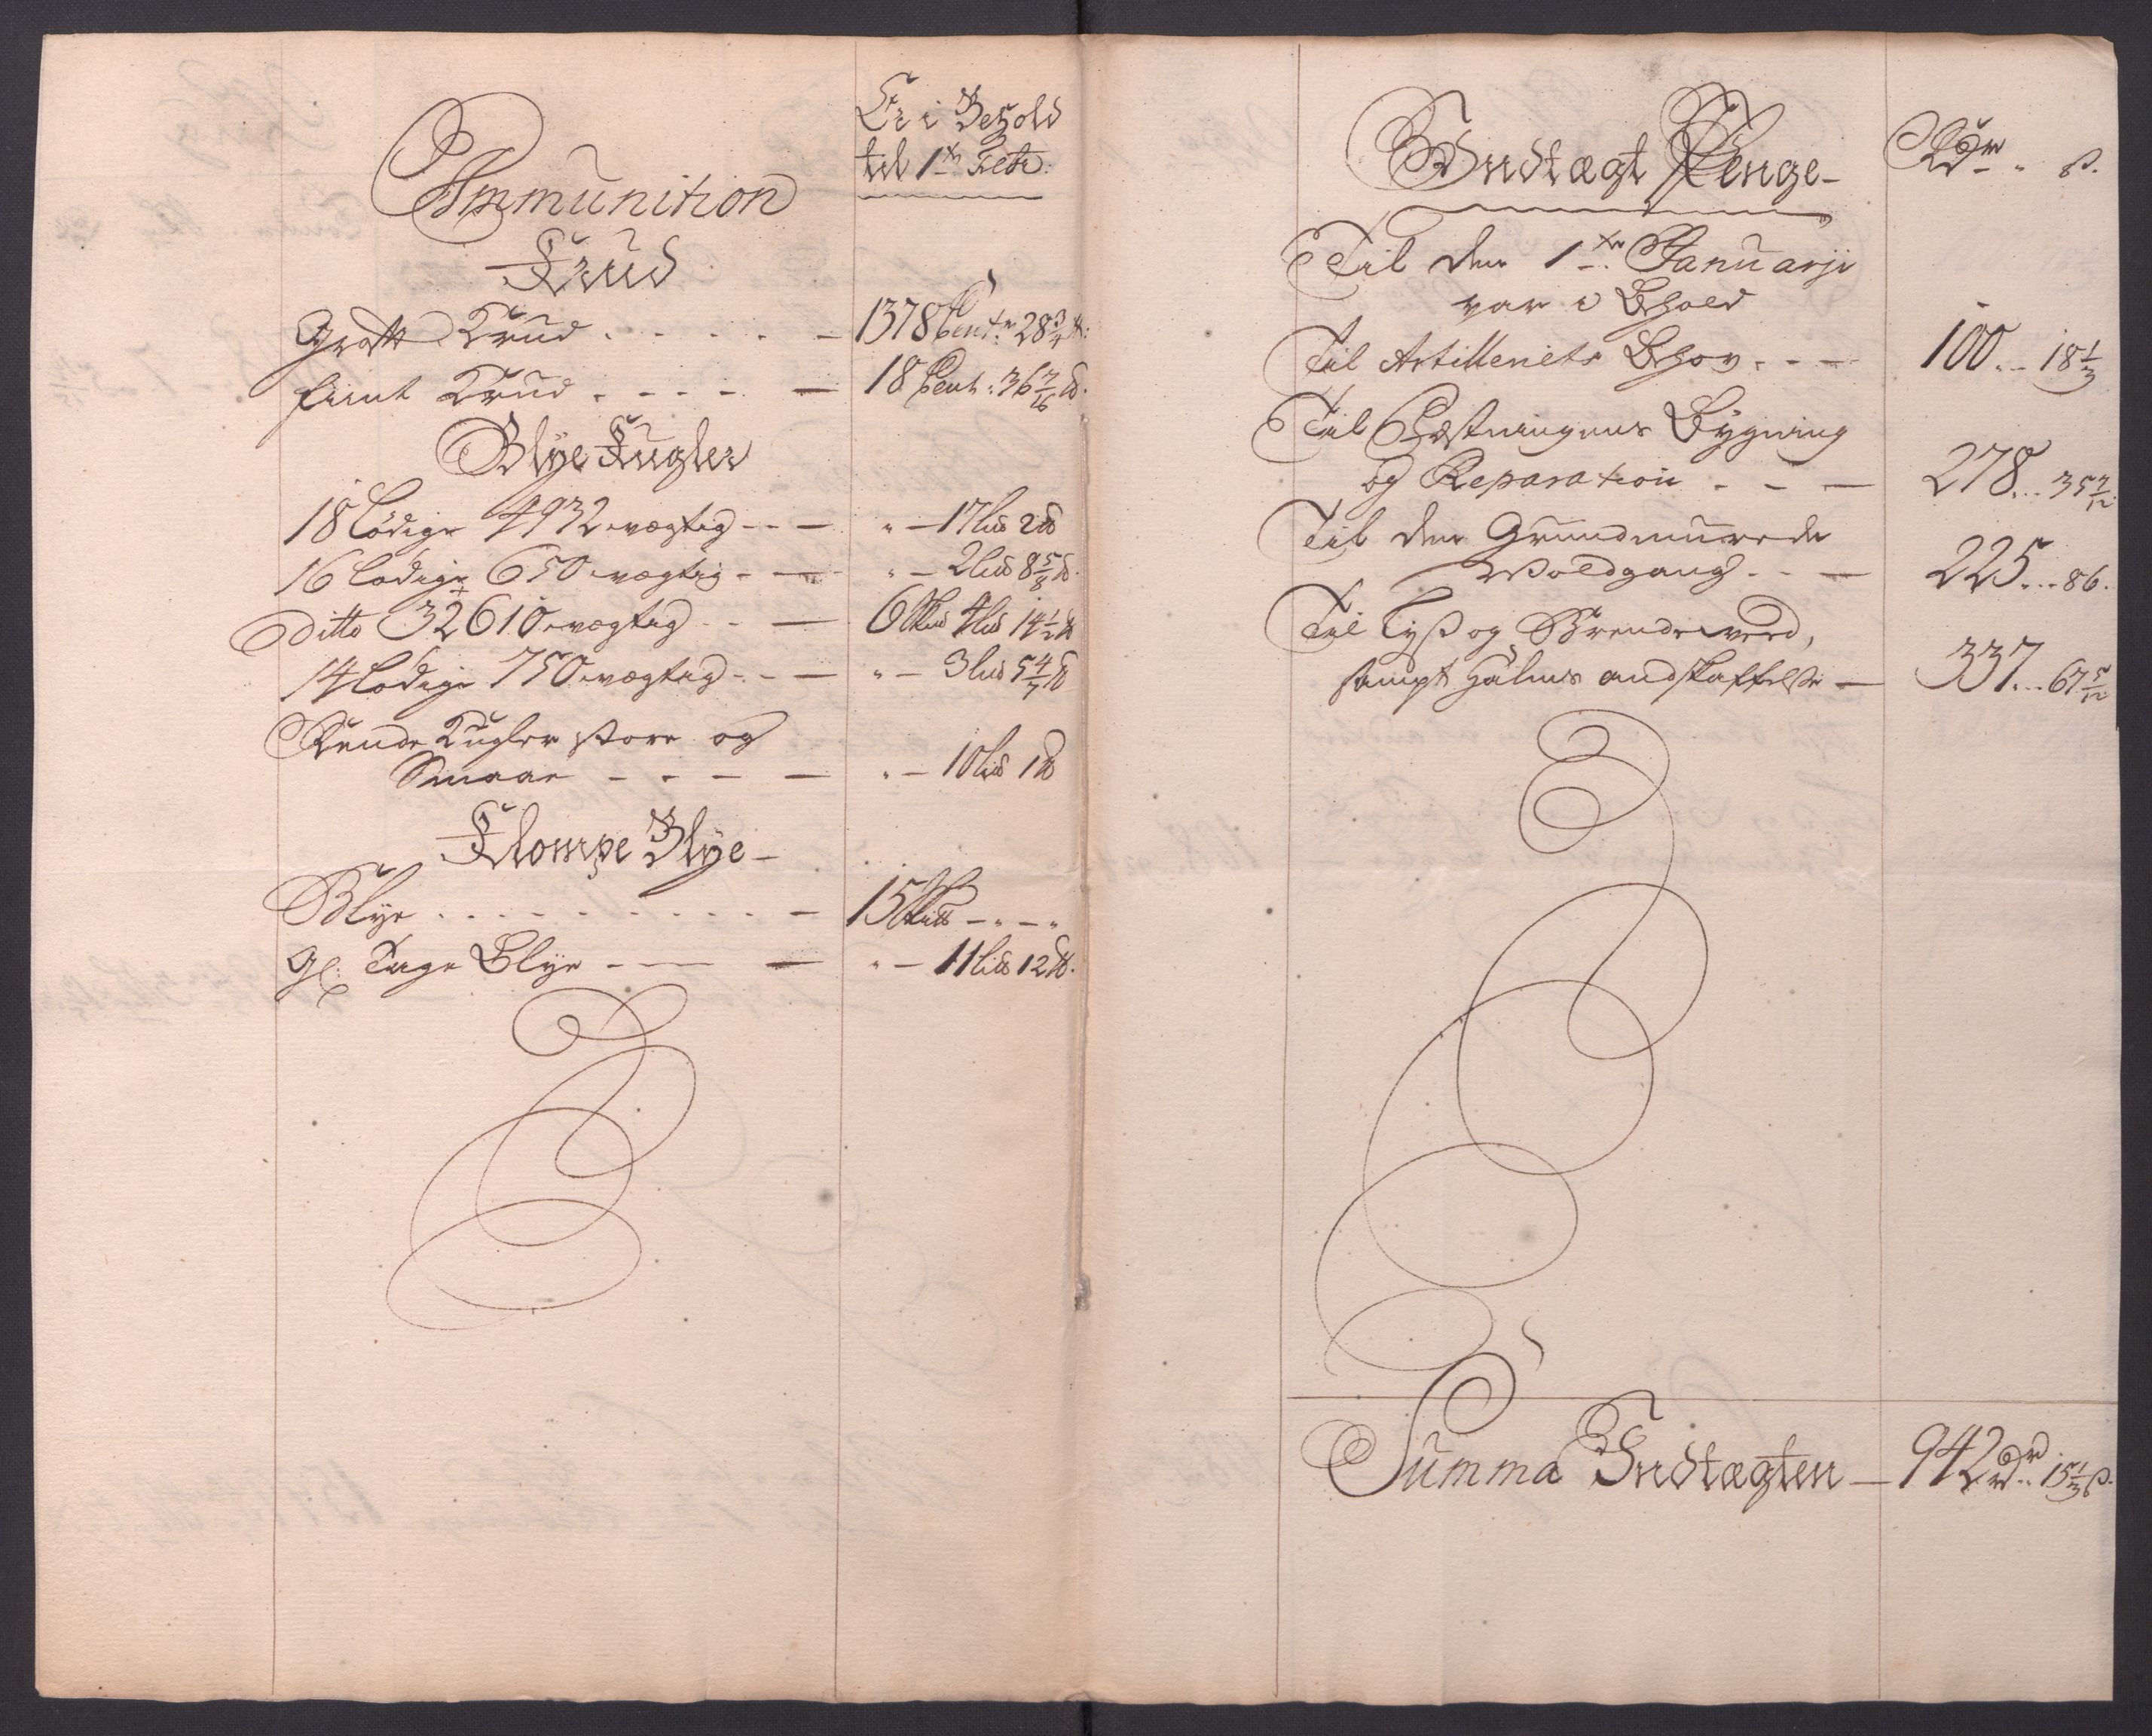 Er i Behold
til 1te Febr:
Ammunition
Krud
Groft Krud - 1378 Cent: 28 3/4 ℔:
fiint Krud - 18 Cent: 36 7/16 ℔.
Blye Kugler
18 Lodige 4932 vægtig - " - 17 Lis℔ 2 ℔
16 Lodige 650 vægtig - " - 2 Lis℔ 8 5/8 ℔.
Ditto 32610 vægtig - 6 Skis℔ 4 Lis℔ 14 1/2 ℔
14 Lodige 750 vægtig - " - 3 Lis℔ 5 4/7 ℔
Runde Kugler store og
Smaae - " - 10 Lis℔ 1 ℔
Klompe Blye -
Blye - 15 Skis℔ - " - "
Gl: Tage Blye - " - 11 Lis℔ 12 ℔.
Indtægt Penge - Rdr " ß.
Til den 1te Januarji
var i Behold
Til Artilleriets Behov - 100 .. 18 1/3
Til Fæstningens Bygning
og Reparation - 278 .. 35 7/12
Til den Grundmurede
Woldgang - 225 .. 86.
Til Lyß og Brendeveed,
sampt Halms andskaffelße - 337 .. 67 5/12
Summa Indtægten - 942 Rdr .. 15 1/3 ß.